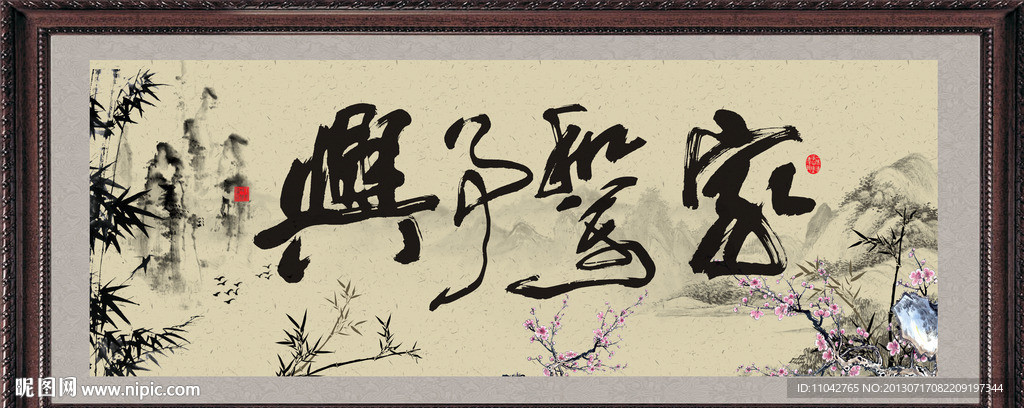 家和萬事興
昵图网 www.nipic.com
ID:11042765 NO:20130717082209197344